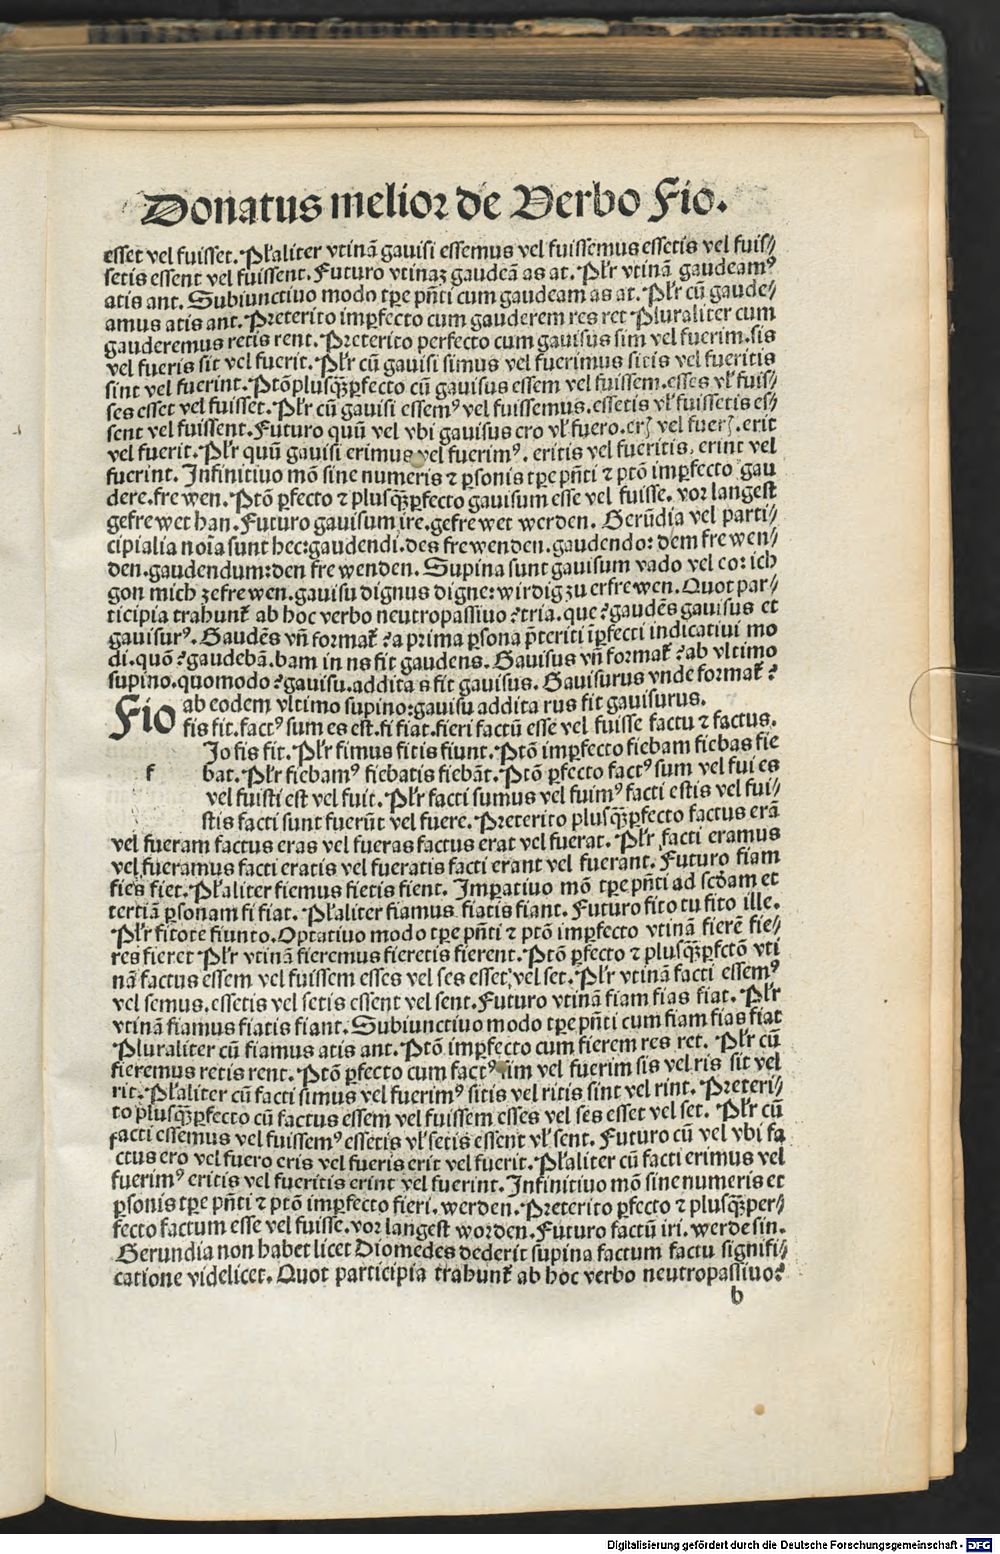 Donatus melior de Verbo Fio.
esset vel fuisset. Pl'aliter vtinā gauisi essemus vel fuissemus essetis vel fuis/
setis essent vel fuissent. Futuro vtinaꝫ gaudeā as at. Pl'r vtinā gaudeamꝰ
atis ant. Subiunctiuo modo tꝑe pn̄ti cum gaudeam as at. Pl'r cū gaude/
amus atis ant. Preterito imꝑfecto cum gauderem res ret Pluraliter cum
gauderemus retis rent. Preterito perfecto cum gauisus sim vel fuerim. sis
vel fueris sit vel fuerit. Pl'r cū gauisi simus vel fuerimus sitis vel fueritis
sint vel fuerint. Ptō plusqȝꝑfecto cū gauisus essem vel fuissem. esses vl' fuis/
ses esset vel fuisset. Pl'r cū gauisi essemꝰ vel fuissemus. essetis vl' fuissetis es/
sent vel fuissent. Futuro quū vel vbi gauisus ero vl' fuero. erꝭ vel fuerꝭ. erit
vel fuerit. Pl'r quū gauisi erimus vel fuerimꝰ. eritis vel fueritis. erint vel
fuerint. Infinitiuo mō sine numeris ⁊ ꝑsonis tꝑe pn̄ti ⁊ ptō imꝑfecto gau
dere. frewen. Ptō ꝑfecto ⁊ plusqȝꝑfecto gauisum esse vel fuisse. vor langest
gefrewet han. Futuro gauisum ire. gefrewet werden. Gerūdia vel parti/
cipialia noīa sunt hec: gaudendi. des frewenden. gaudendo: dem frewen/
den. gaudendum: den frewenden. Supina sunt gauisum vado vel eo: ich
gon mich zefrewen. gauisu dignus digne: wirdig zu erfrewen. Quot par/
ticipia trahunt̄ ab hoc verbo neutropassiuo? tria. que? gaudēs gauisus et
gauisurꝰ. Gaudēs vn̄ format̄? a prima ꝑsona p̄teriti īꝑfecti indicatiui mo
di. quō? gaudebā. bam in ns fit gaudens. Gauisus vn̄ format̄? ab vltimo
supino. quomodo? gauisu. addita s fit gauisus. Gauisurus vnde format̄?
ab eodem vltimo supino: gauisu addita rus fit gauisurus.
Fio fis fit. factꝰ sum es est. fi fiat. fieri factū esse vel fuisse factu ⁊ factus.
Io fis fit. Pl'r fimus fitis fiunt. Ptō imꝑfecto fiebam fiebas fie
f bat. Pl'r fiebamꝰ fiebatis fiebāt. Ptō ꝑfecto factꝰ sum vel fui es
vel fuisti est vel fuit. Pl'r facti sumus vel fuimꝰ facti estis vel fui/
stis facti sunt fuerūt vel fuere. Preterito plusqȝꝑfecto factus erā
vel fueram factus eras vel fueras factus erat vel fuerat. Pl'r facti eramus
vel fueramus facti eratis vel fueratis facti erant vel fuerant. Futuro fiam
fies fiet. Pl'aliter fiemus fietis fient. Imꝑatiuo mō tꝑe pn̄ti ad scd̄am et
tertiā ꝑsonam fi fiat. Pl'aliter fiamus fiatis fiant. Futuro fito tu fito ille.
Pl'r fitote fiunto. Optatiuo modo tꝑe pn̄ti ⁊ ptō imꝑfecto vtinā fierē fie/
res fieret Pl'r vtinā fieremus fieretis fierent. Ptō ꝑfecto ⁊ plusqȝꝑfctō vti
nā factus essem vel fuissem esses vel ses esset vel set. Pl'r vtinā facti essemꝰ
vel semus. essetis vel setis essent vel sent. Futuro vtinā fiam fias fiat. Pl'r
vtinā fiamus fiatis fiant. Subiunctiuo modo tꝑe pn̄ti cum fiam fias fiat
Pluraliter cū fiamus atis ant. Ptō imꝑfecto cum fierem res ret. Pl'r cū
fieremus retis rent. Ptō ꝑfecto cum factꝰ sim vel fuerim sis vel ris sit vel
rit. Pl'aliter cū facti simus vel fuerimꝰ sitis vel ritis sint vel rint. Preteri/
to plusqȝꝑfecto cū factus essem vel fuissem esses vel ses esset vel set. Pl'r cū
facti essemus vel fuissemꝰ essetis vl' setis essent vl' sent. Futuro cū vel vbi fa
ctus ero vel fuero eris vel fueris erit vel fuerit. Pl'aliter cū facti erimus vel
fuerimꝰ eritis vel fueritis erint vel fuerint. Infinitiuo mō sine numeris et
ꝑsonis tꝑe pn̄ti ⁊ ptō imꝑfecto fieri. werden. Preterito ꝑfecto ⁊ plusqȝper/
fecto factum esse vel fuisse. vor langest worden. Futuro factū iri. werde sin.
Gerundia non habet licet Diomedes dederit supina factum factu signifi/
catione videlicet. Quot participia trahunt̄ ab hoc verbo neutropassiuo?
b
Digitalisierung gefördert durch die Deutsche Forschungsgemeinschaft - DFG